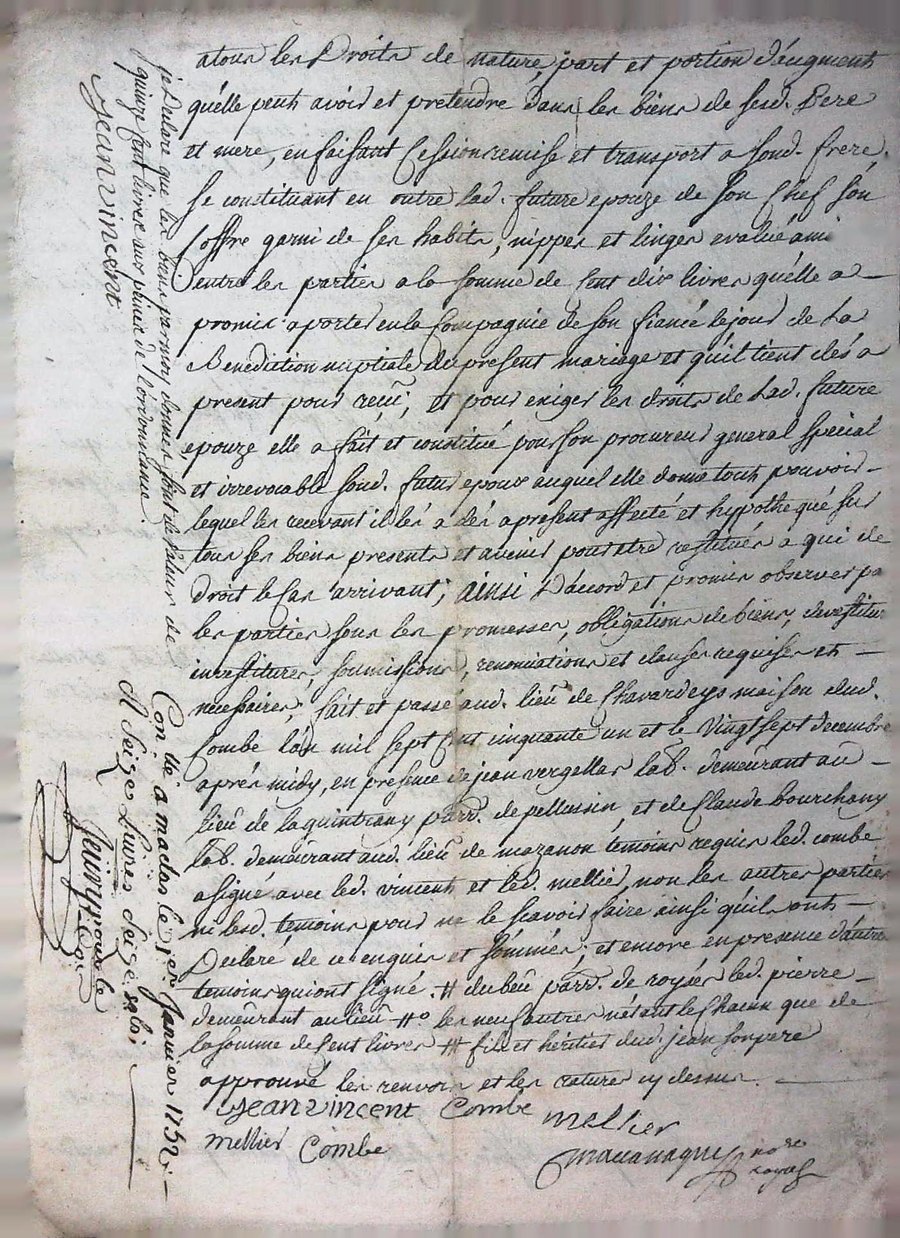 atous les Droits de nature, part et portion d'augment
qu'elle peut avoir et pretendre dans les biens de sesd. Pere
et mere, en faisant Cession remise et transport a sond. frere.
Se constituant en outre lad. future epouze de son Chef son
Coffre garni de ses habits, nippes et linges evalué ami
entre les parties a la somme de Cent dix livres qu'elle a
promis aporter en la Compagnie de son fiancé le jour de La
Benediction nuptiale du present mariage et qu'il tient dés a
present pour reçu; et pour exiger les droits de Lad. future
epouze elle a fait et constitué pour son procureur general special
et irrevocable sond. futur epoux auquel elle donne tout pouvoir
lequel les recevant il les a dés apresent affecté et hypothequé sur
tous ses biens presents et avenir pour etre restitués a qui de
droit le Cas arrivant; ainsi D'accord et promis observer pa
les parties sous les promesses, obligations de biens, devestitur
investitures, soumissions, renonciations et clauses requises et
necessaires; fait et passé aud. lieu de Chavardeys maison dud.
Combe l'an mil sept cent cinquante un et le vingt sept decembre
aprés midy, en presence de jean vergellas lab. demeurant au
lieu de laquintrany parr. de pellussin, et de Claude bourchany
lab. demeurant aud. lieu de mazanon temoins requis led. combe
a signé avec led. vincent et led. mellier, non les autres parties
ni lesd. temoins pour ne le scavoir faire ainsi qu'ils ont
Declaré de ce enquis et sommés; et encore en presence d'autres
temoins qui ont signé. # du beu parr. de royés led. pierre
demeurant au lieu #° les neuf autres n'étant le Chacun que de
la somme de Cent livres ## fils et heritier dud. jean son pere
approuvé les renvois et les ratures cy dessus.
jean vincent Combe mellier
mellier Combe
no.re royal
je Declare que les biens par moy donnés sont de valeur de
quinze cent livres aux peines de l'ordonnance.
jean vincent
Con. lé a maclas le 1er Janvier 1752
R Seize Livres Seize s.